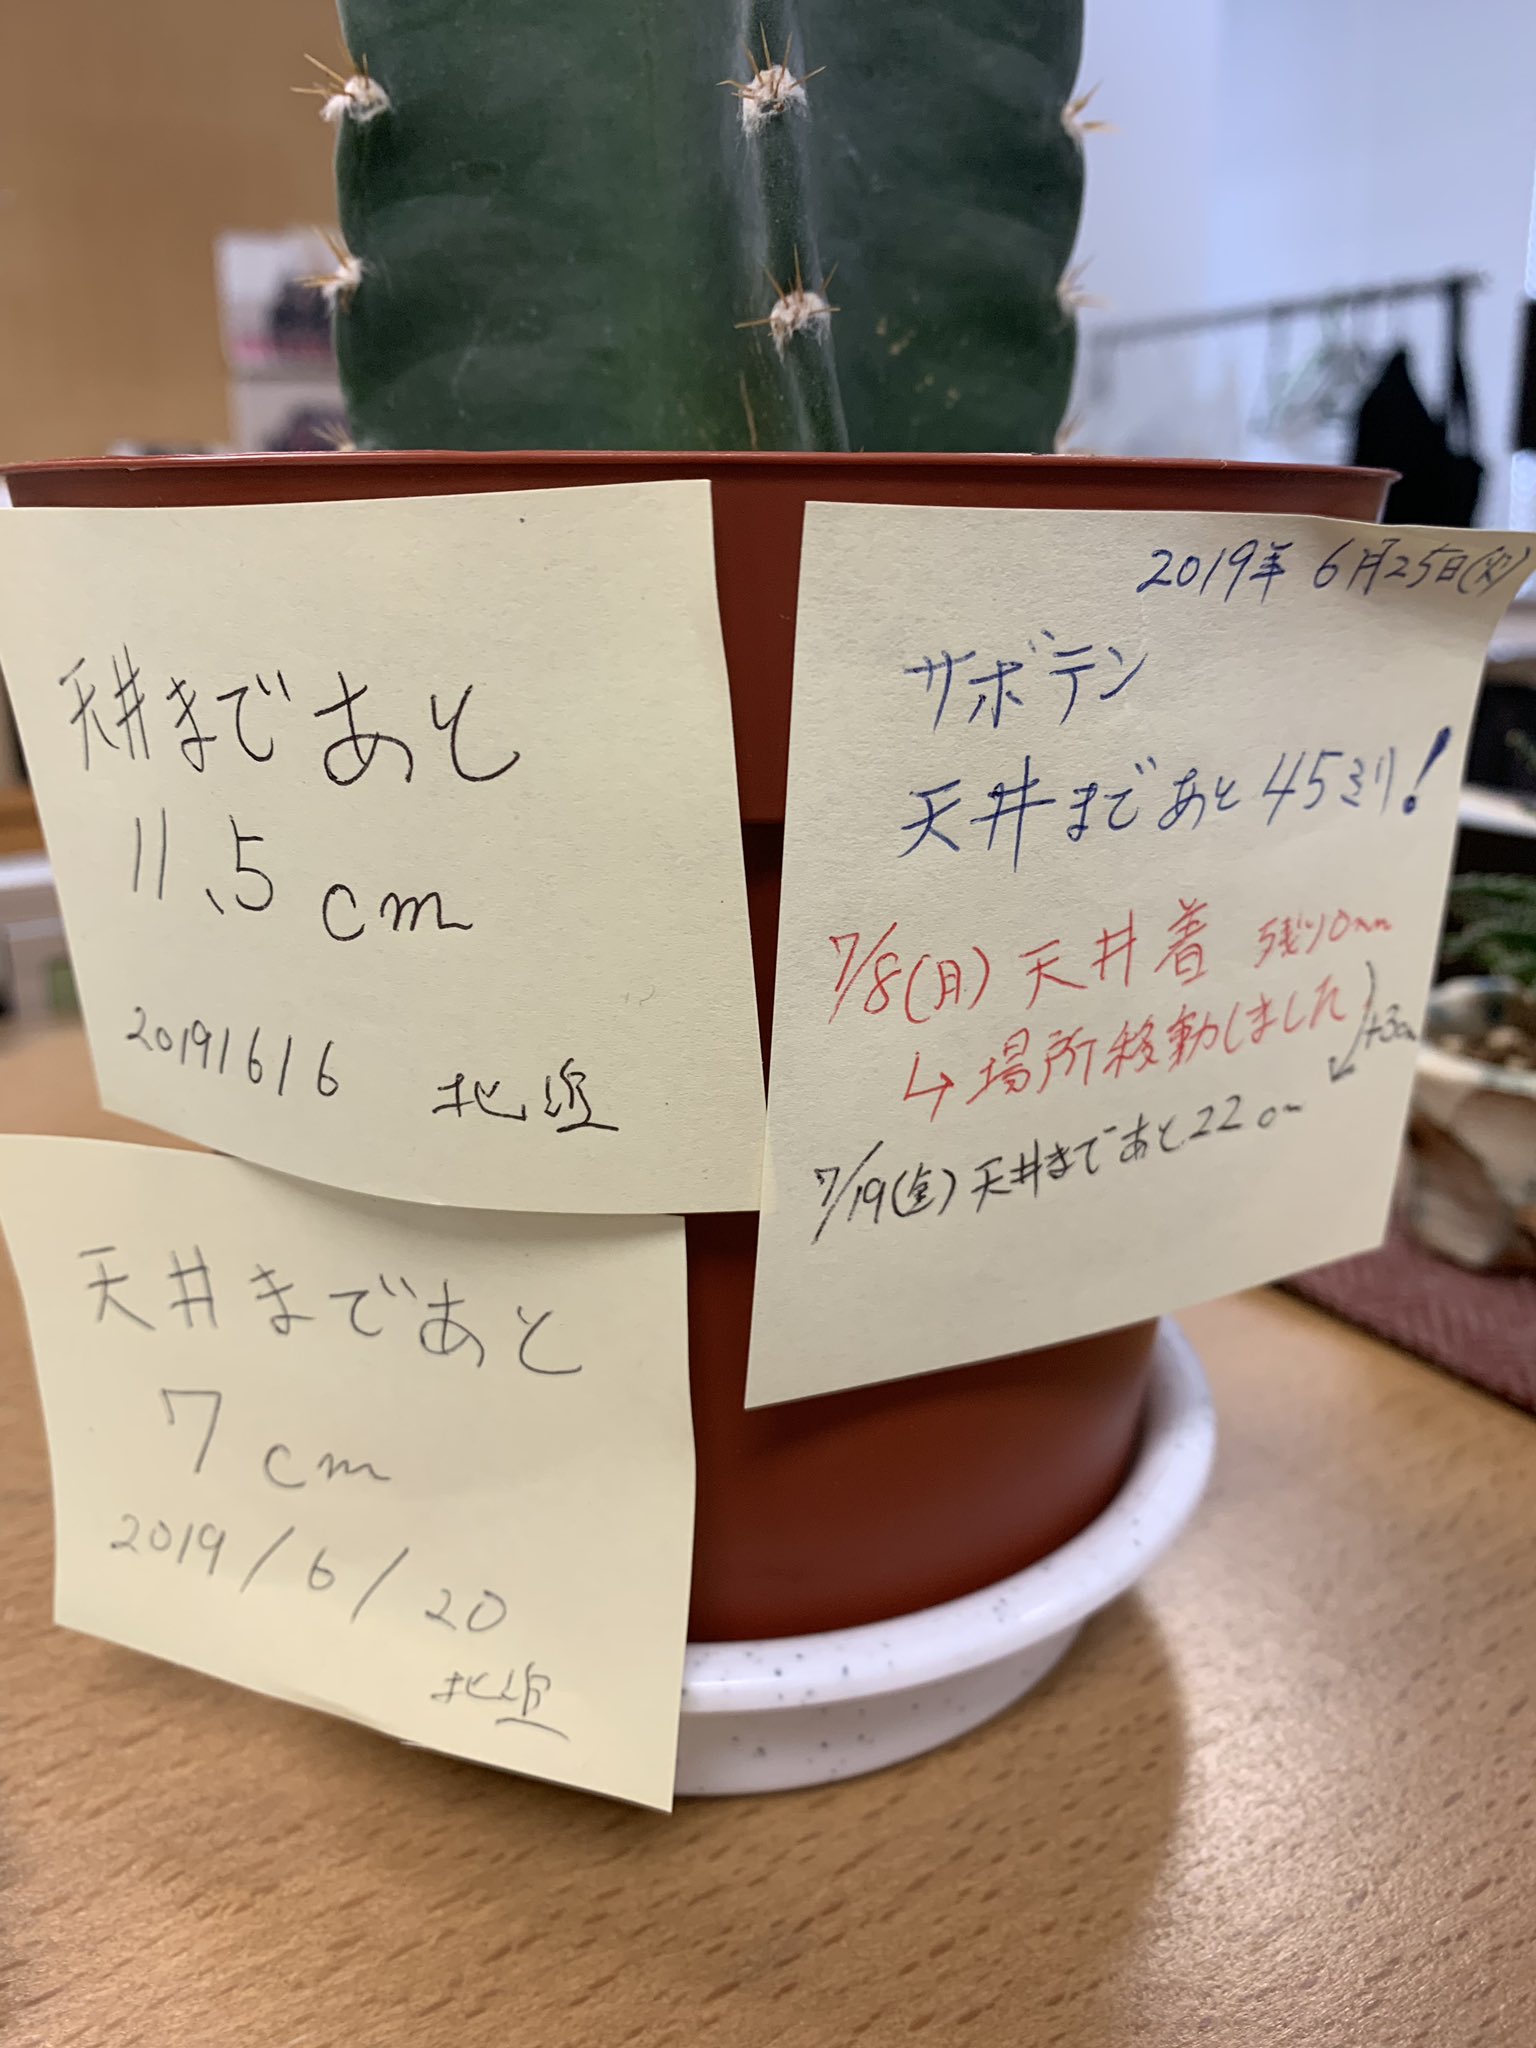 天井まであと
11.5cm
2019/6/6
天井まであと
7cm
2019/6/20
2019年6月25日(火)
サボテン
天井まであと45ミリ!
7/8(月)天井着 残り0mm
↳場所移動しました
+3cm
7/19(金)天井まであと22cm